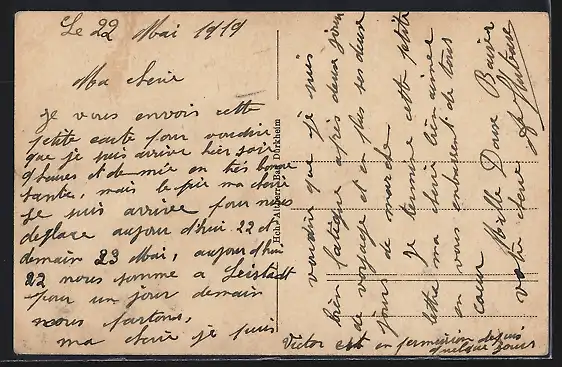 Le 22 Mai 1919
Ma cherie
Je vous envois cette
petite carte pour voudire
que je suis arrivé hier soir
9 heures et demie en tres bonne
santée, mais le pir ma cherie
Je suis arrivée pour nous
deplace aujour d'hui 22 et
demain 23 Mai, aujour d'hui
22 nous somme a Leistadt
pour un jour demain
nous partons,
ma cherie je suis
voudire que je suis
bien fatigue après deux jour
de voyage et en plus ses deux
jours de marche
Je termine cette petite
lettre ma cherie bien aimee
en vous embrassent de tous
coeur Mille Doux Baiser
votre cheri
Victor est en permission depuis
quelque jours
Hch. Altherr, Bad Dürkheim